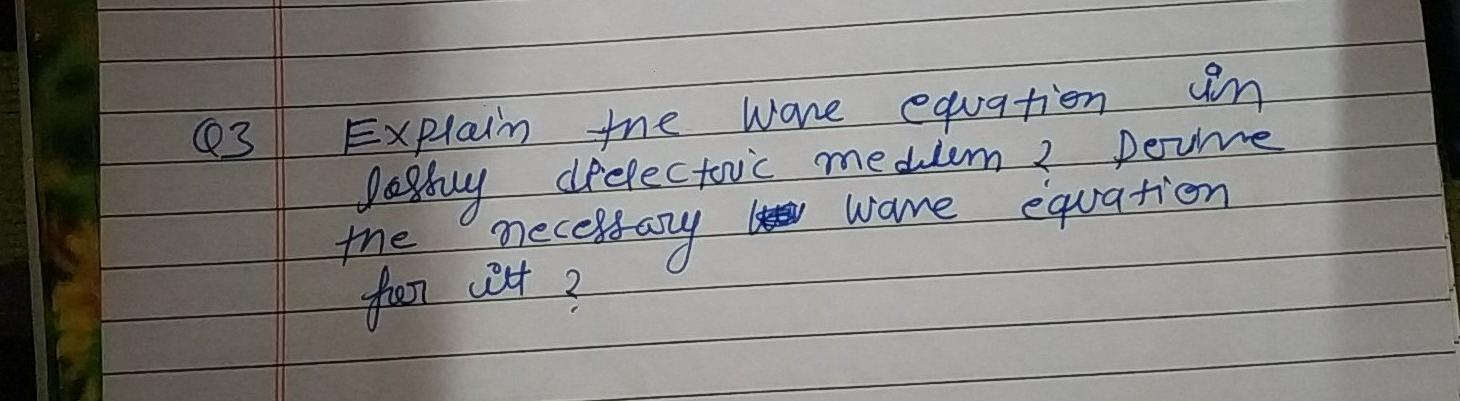 Q3 Explain the wave equation in
lossy dielectric medium ? Derive
the necessary wave equation
for it ?